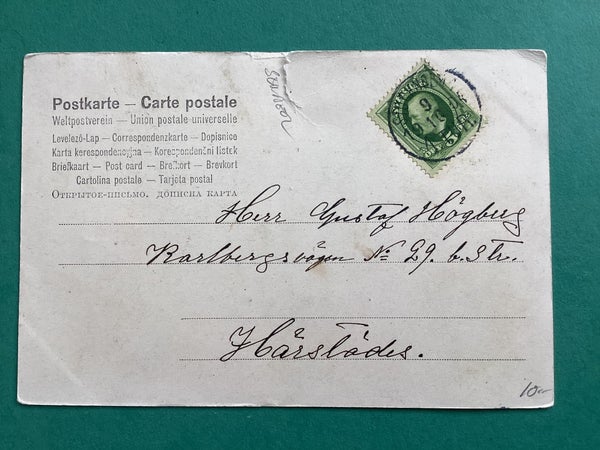 Postkarte — Carte postale
Weltpostverein — Union postale universelle
Levelező-Lap — Correspondenzkarte — Dopisnice
Karta korespondencyjna — Korespondenční lístek
Briefkaart — Post card — Brefkort — Brevkort
Cartolina postale — Tarjeta postal
Открытое-письмо. дописна карта
5
Herr Gustaf Högberg
Karlbergsvägen No 29. b. 3 tr.
Härstädes.
10:-